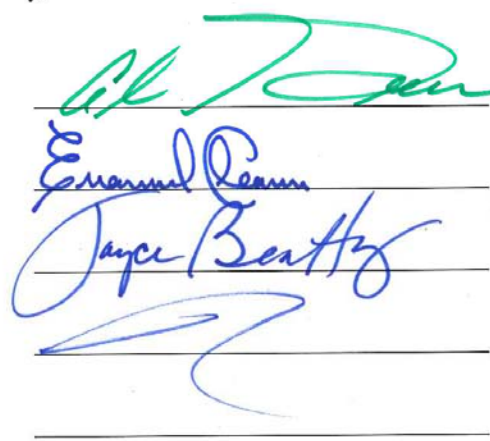 Al Green
Emanuel Cleaver
Joyce Beatty